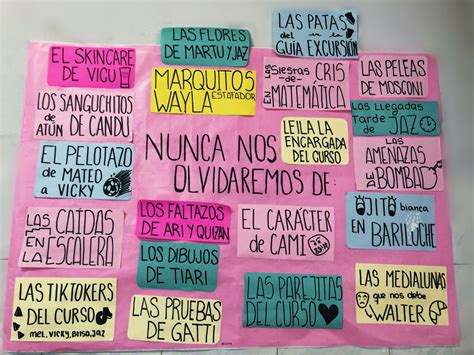 LAS FLORES
DE MARTU Y JAZ
LAS PATAS
del en la
GUÍA EXCURSIÓN
EL SKINCARE
DE VIGU
MARQUITOS
WAYLA ESTAFADOR
Las
Siestas CRIS
DE EN
MATEMÁTICA
LAS PELEAS
DE MOSCONI
LOS SANGUCHITOS
DE ATÚN DE CANDU
LAS Llegadas
Tarde de JAZ
LEILA LA
ENCARGADA
DEL CURSO
EL PELOTAZO
DE MATEO
A VICKY
NUNCA NOS
OLVIDAREMOS DE:
LAS
AMENAZAS
DE BOMBA
LAS
CAÍDAS
EN LA
ESCALERA
LOS FALTAZOS
DE ARI Y QUIZAN
EL CARÁCTER
DE CAMI
OJITO blanca
EN BARILUCHE
LOS DIBUJOS
DE TIARI
LAS TIKTOKERS
DEL CURSO
MEL, VICKY, BRISA, JAZ
LAS PRUEBAS
DE GATTI
LAS PAREJITAS
DEL CURSO
LAS MEDIALUNAS
que nos debe
WALTER